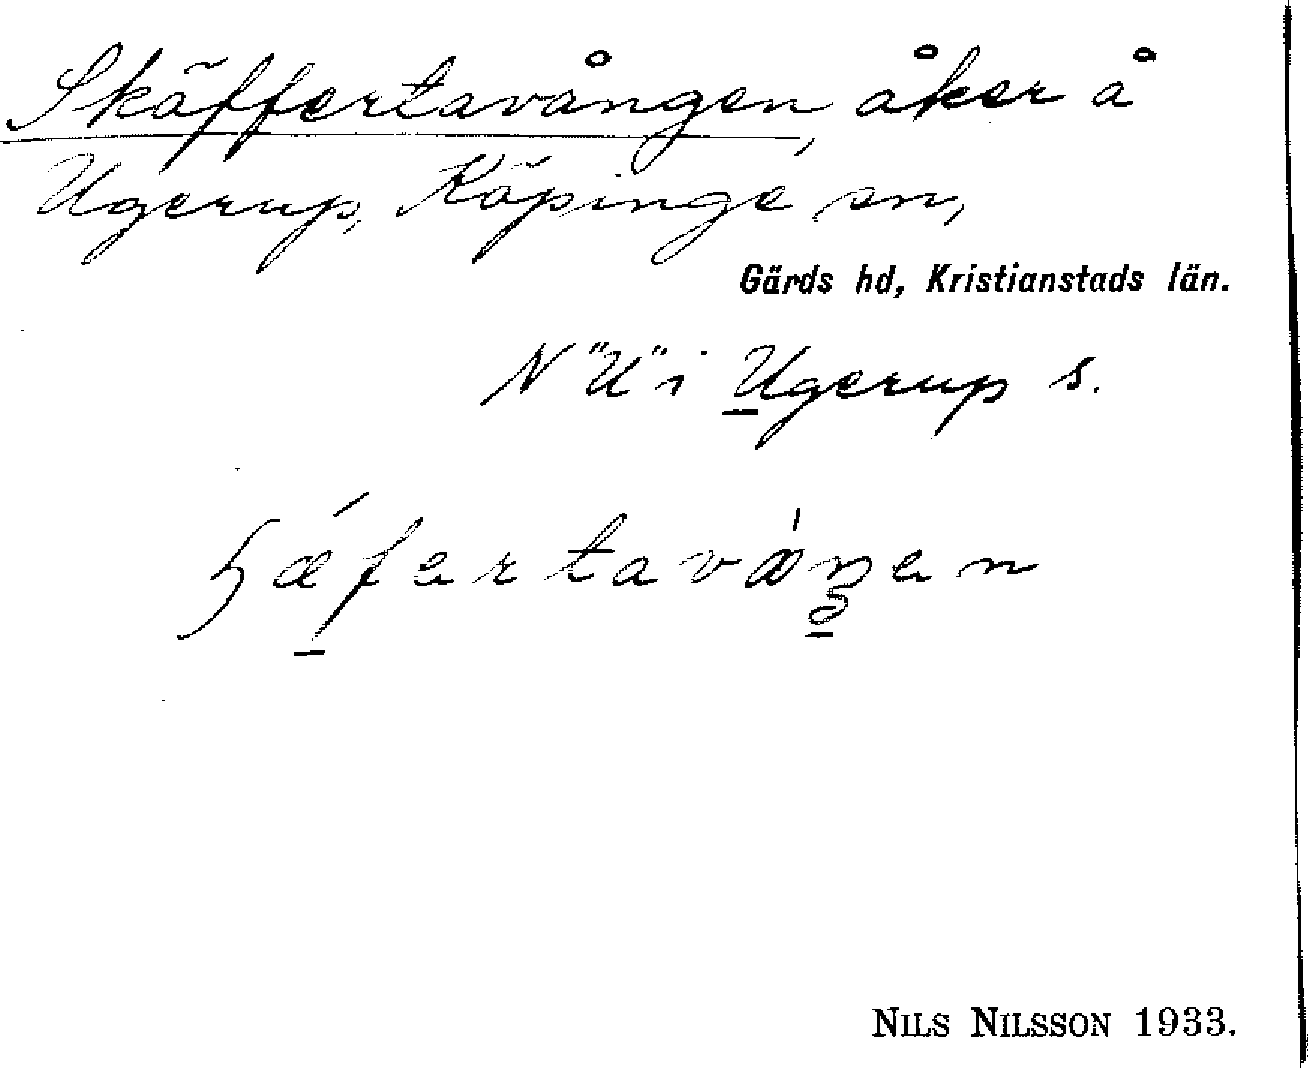 Skäffertavången, åker å
Ugerup, Köpinge sn,
Gärds hd, Kristianstads län.
N "U" i Ugerup s.
NILS NILSSON 1933.